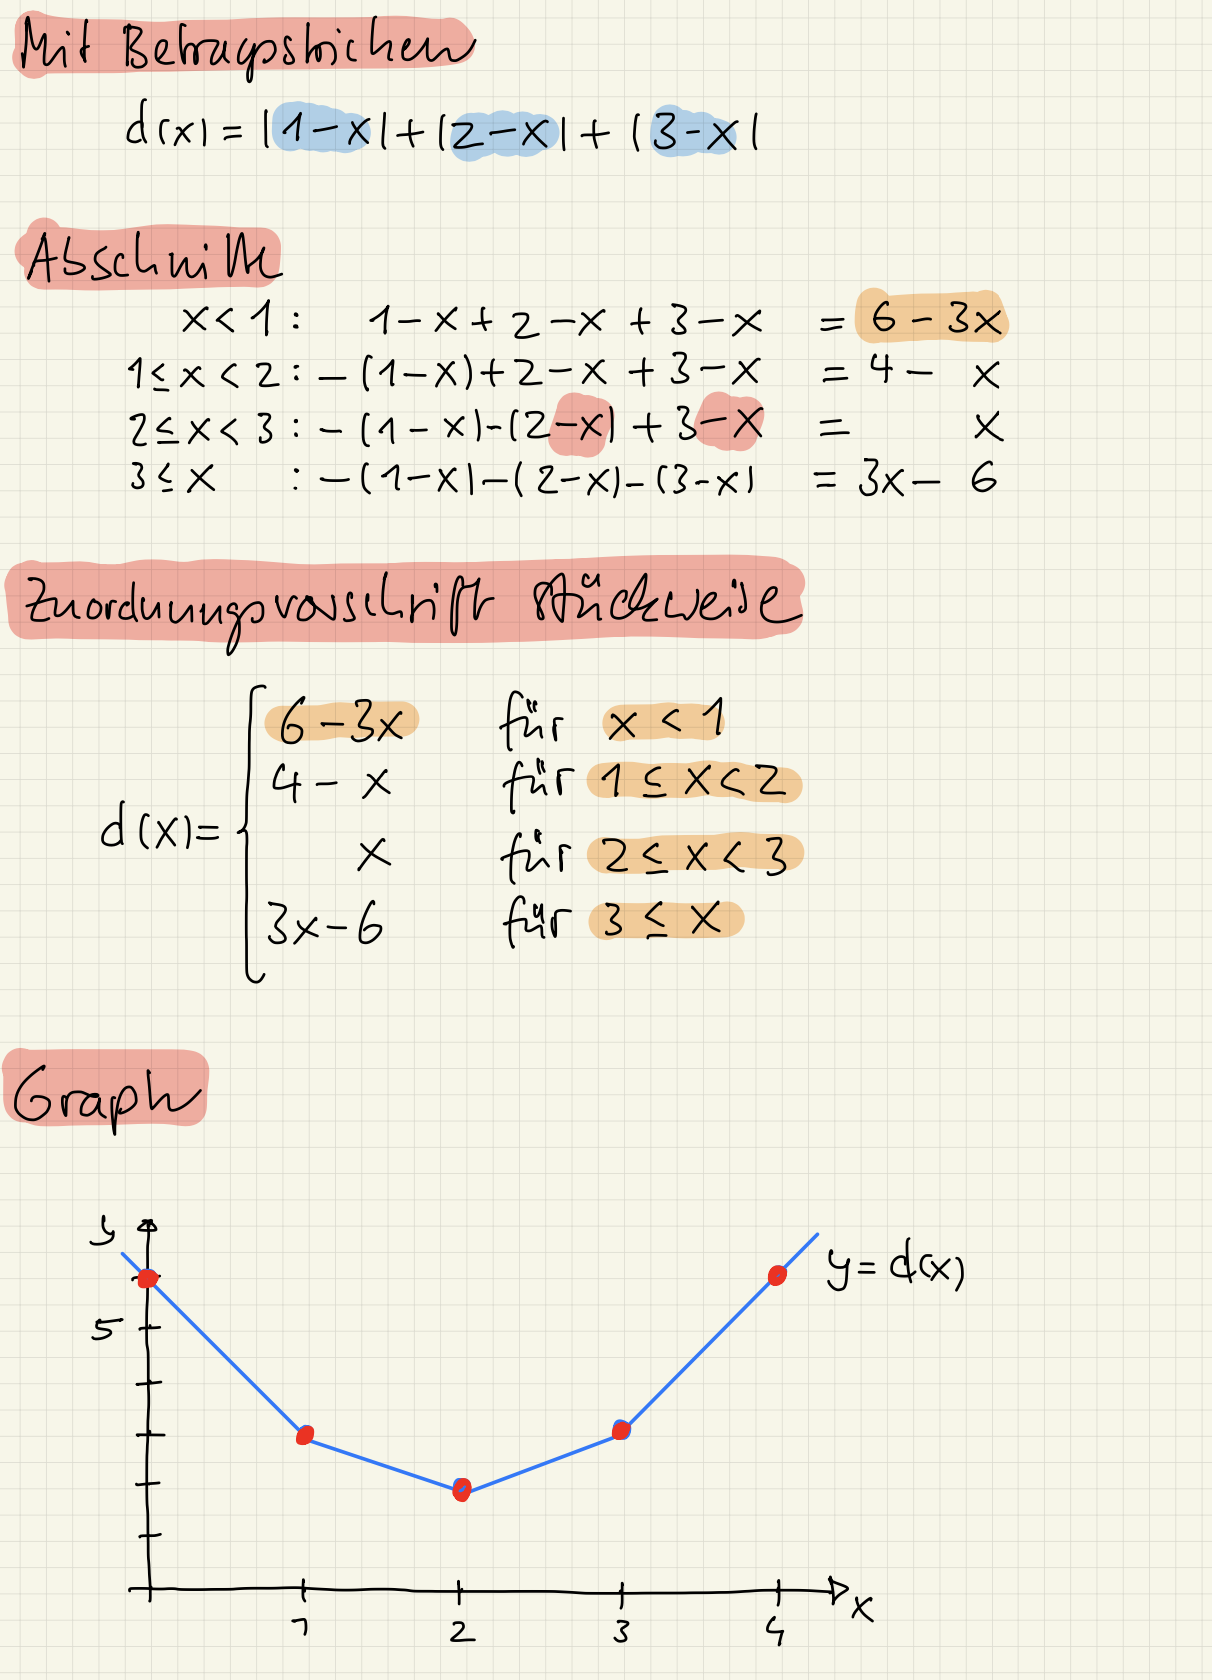 Mit Betragsstrichen
d(x) = |1-x| + |2-x| + |3-x|
Abschnitte
x < 1 : 1-x + 2-x + 3-x = 6-3x
1 ≤ x < 2 : -(1-x) + 2-x + 3-x = 4-x
2 ≤ x < 3 : -(1-x)-(2-x) + 3-x = x
3 ≤ x : -(1-x)-(2-x)-(3-x) = 3x-6
Zuordnungsvorschrift stückweise
6-3x für x < 1
4-x für 1 ≤ x < 2
d(x)=
x für 2 ≤ x < 3
3x-6 für 3 ≤ x
Graph
y
y = d(x)
5
x
1 2 3 4